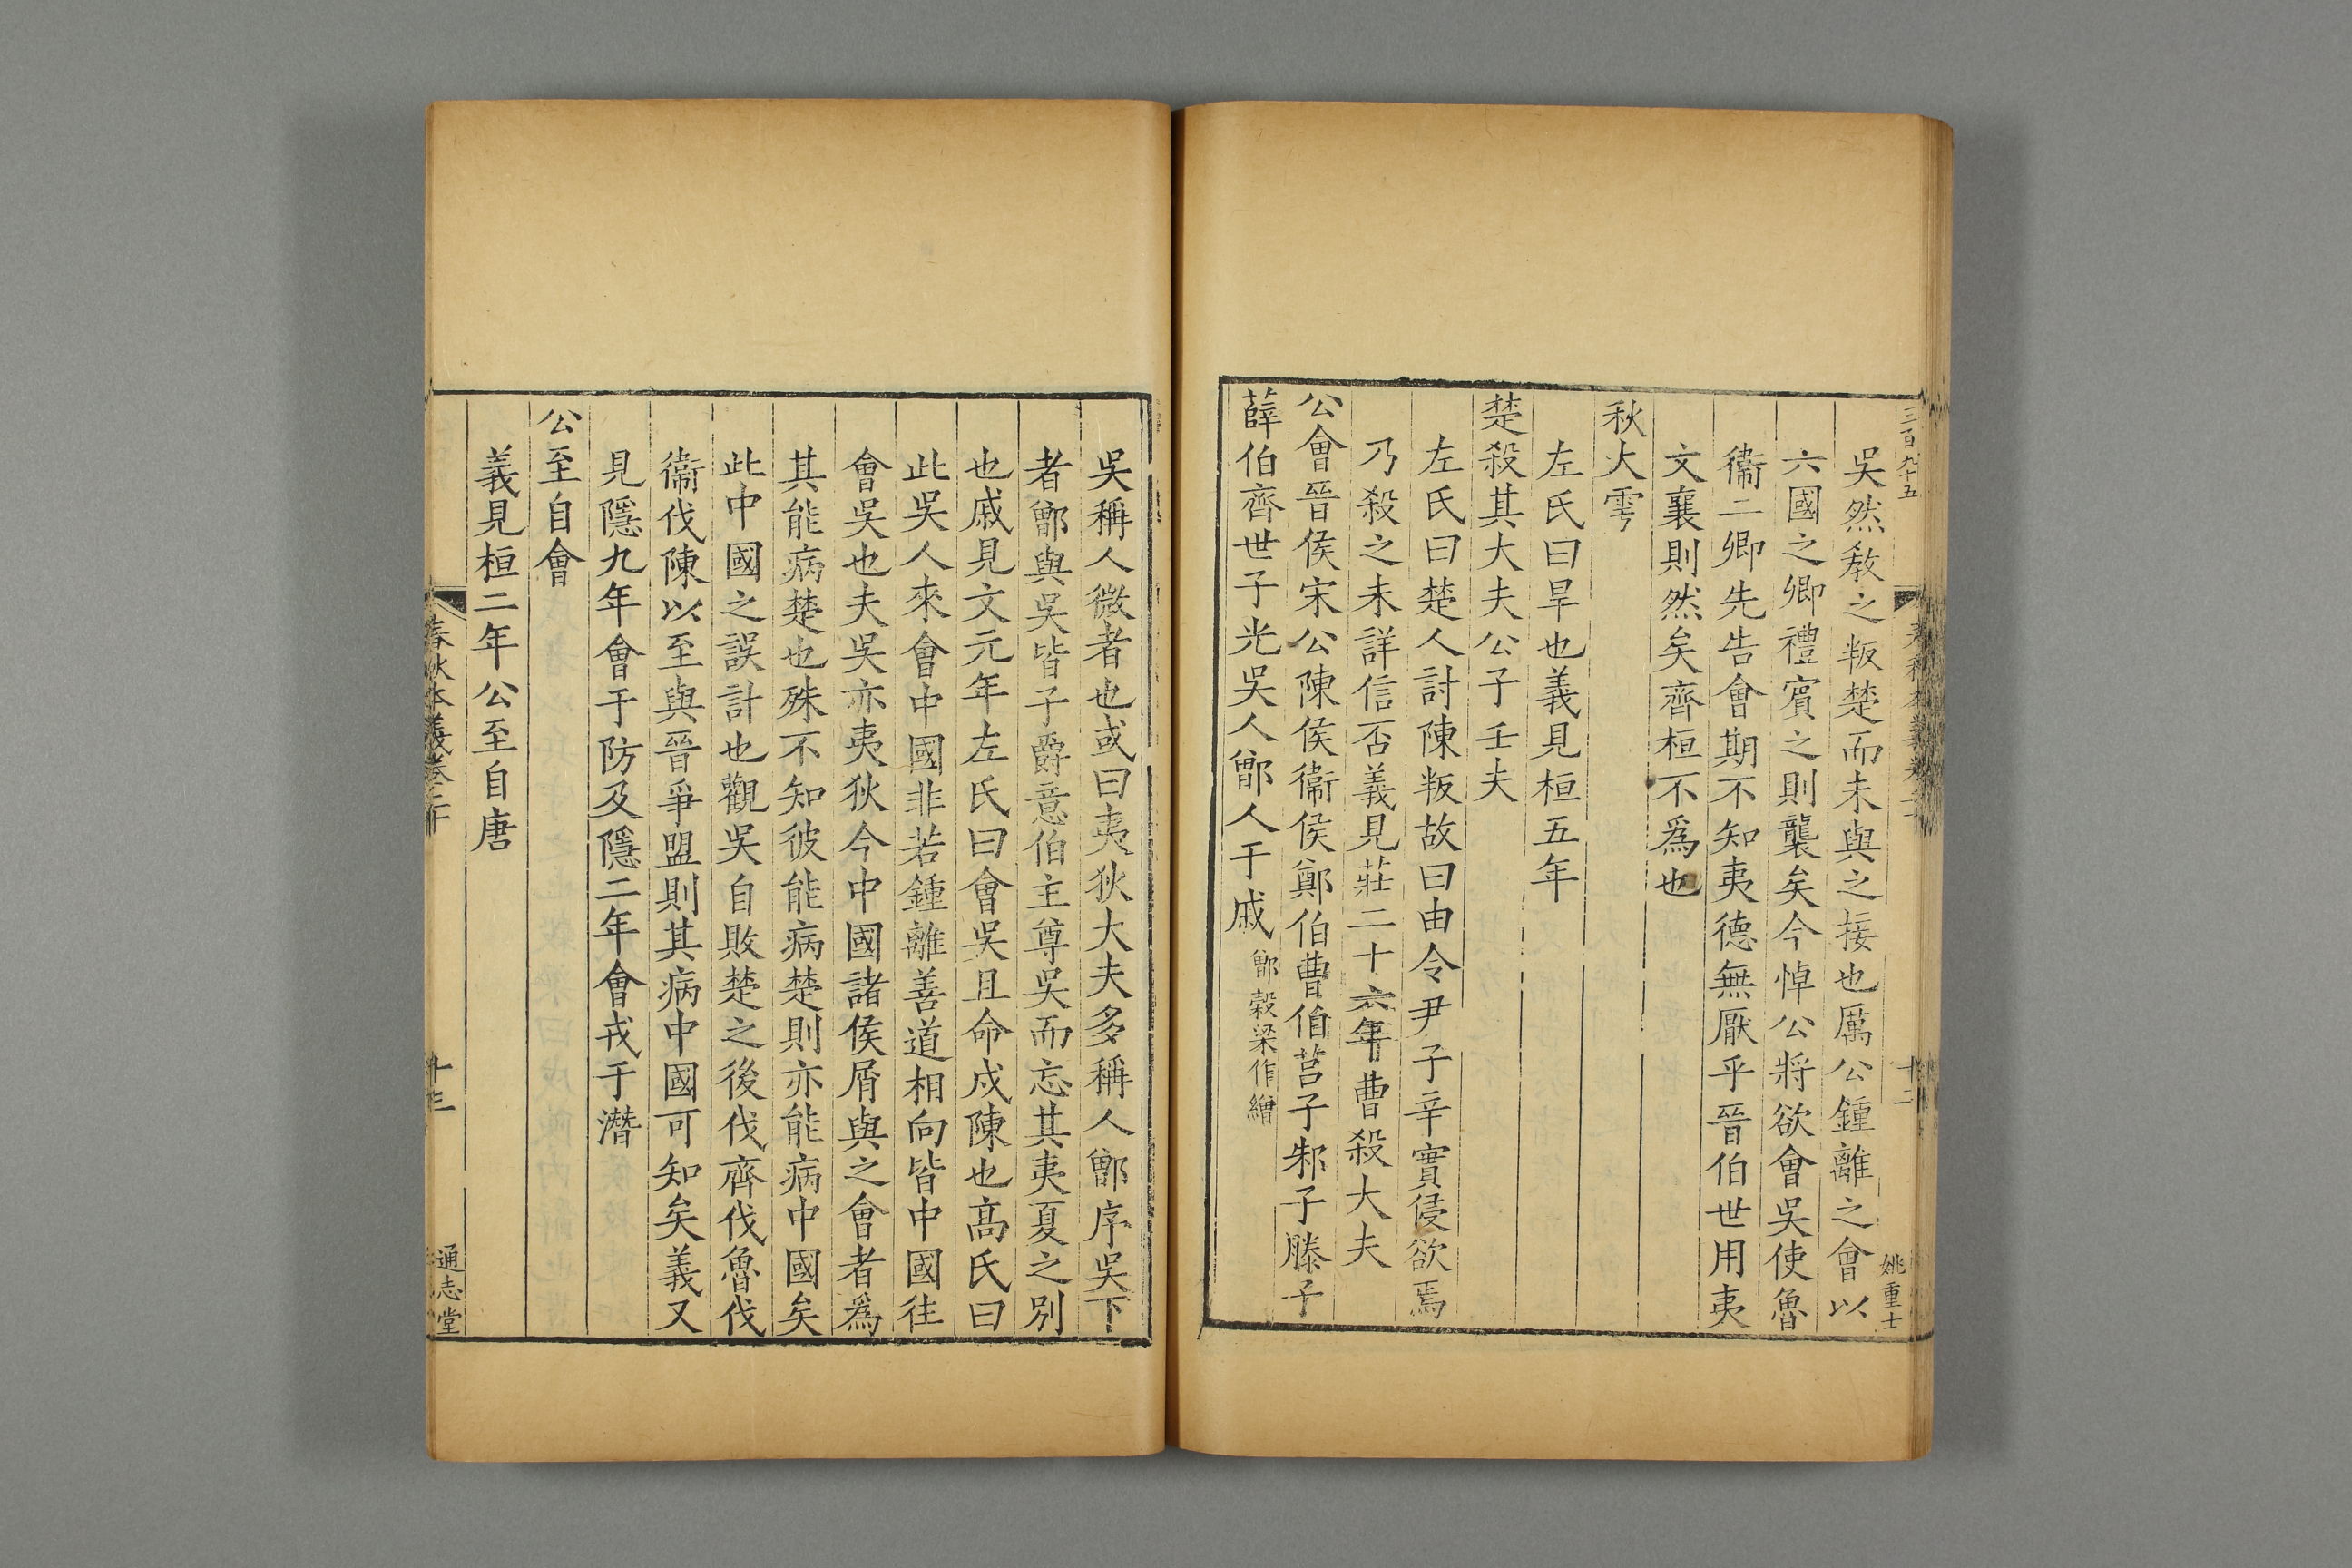 三百九十五
十二
姚重士
吳然敎之叛楚而未與之接也厲公鍾離之會以
六國之卿禮賓之則襲矣今悼公將欲會吳使魯
衞二卿先告會期不知夷德無厭乎晉伯世用夷
文襄則然矣齊桓不爲也
秋大雩
左氏曰旱也義見桓五年
楚殺其大夫公子壬夫
左氏曰楚人討陳叛故曰由令尹子辛實侵欲焉
乃殺之未詳信否義見莊二十六年曹殺大夫
公會晉侯宋公陳侯衞侯鄭伯曹伯莒子邾子滕子
薛伯齊世子光吳人鄫人于戚鄫穀梁作繒
吳稱人微者也或曰夷狄大夫多稱人鄫序吳下
者鄫與吳皆子爵意伯主尊吳而忘其夷夏之別
也戚見文元年左氏曰會吳且命戍陳也高氏曰
此吳人來會中國非若鍾離善道相向皆中國往
會吳也夫吳亦夷狄今中國諸侯屑與之會者爲
其能病楚也殊不知彼能病楚則亦能病中國矣
此中國之誤計也觀吳自敗楚之後伐齊伐魯伐
衞伐陳以至與晉爭盟則其病中國可知矣義又
見隱九年會于防及隱二年會戎于潛
公至自會
義見桓二年公至自唐
春秋本義卷二十
十三
通志堂